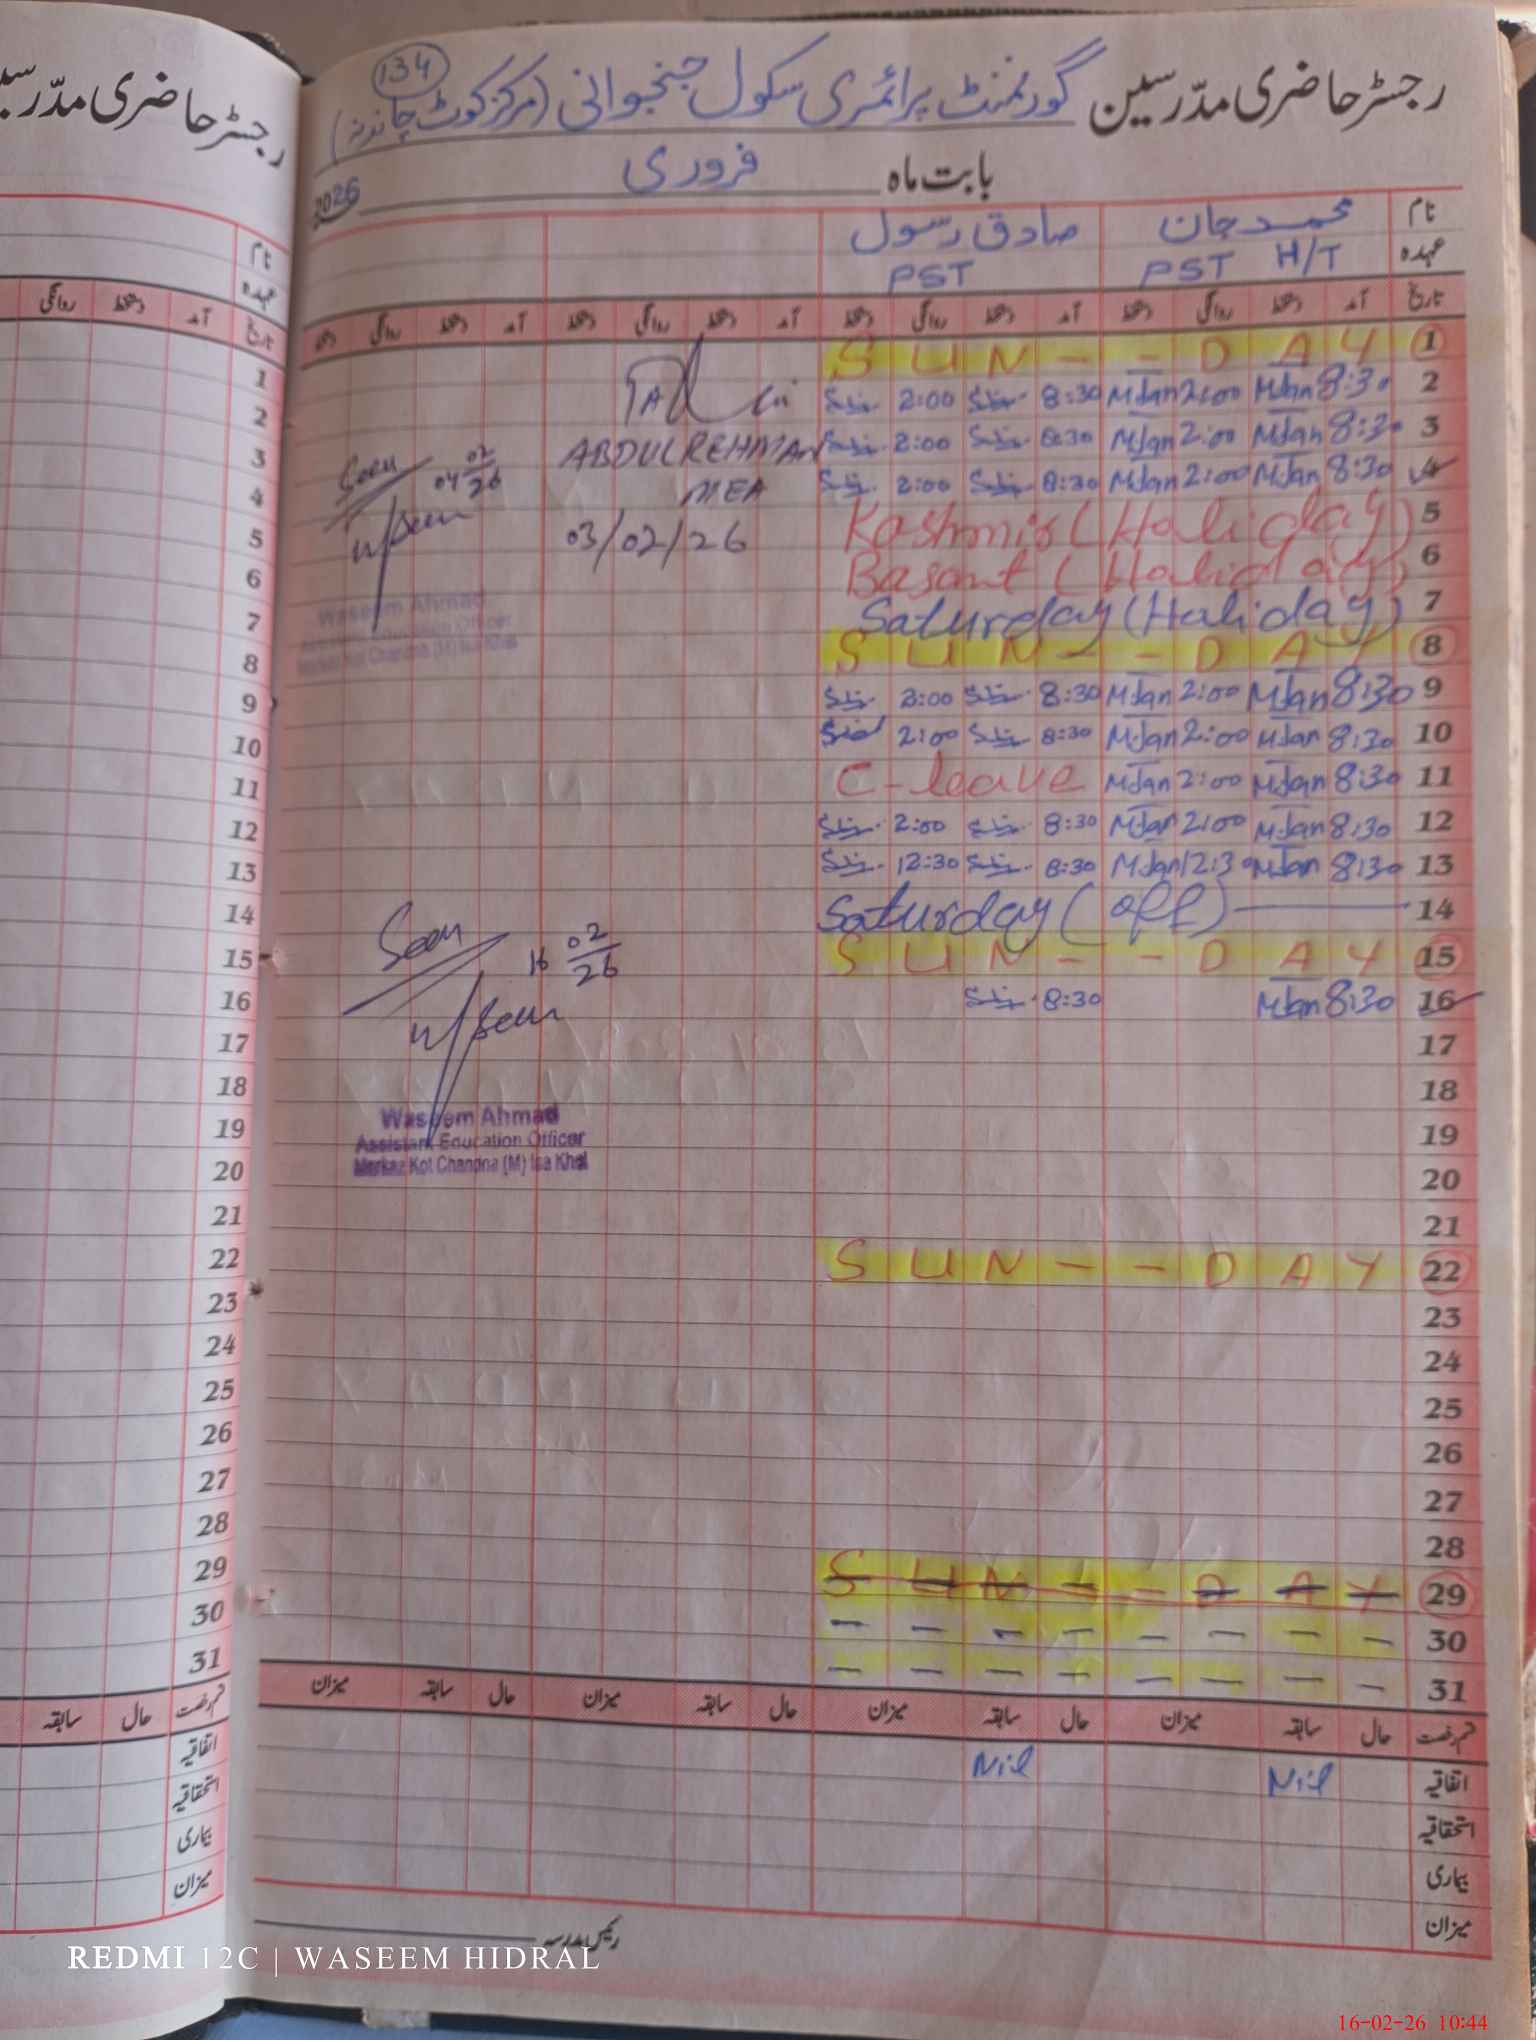 رجسٹر حاضری مدّرسین گورنمنٹ پرائمری سکول جنجوانی (مرکز کوٹ چاندنہ)
134
بابت ماہ فروری 2026
نام محمد جان صادق رسول
عہدہ PST H/T PST
تاریخ آمد دستخط روانگی دستخط آمد دستخط روانگی دستخط آمد دستخط روانگی دستخط آمد دستخط روانگی دستخط
S U N - - D A Y 1
2:00 8:30 MJan 2:00 MJan 8:30 2
2:00 8:30 MJan 2:00 MJan 8:30 3
2:00 8:30 MJan 2:00 MJan 8:30 4
Kashmir (Holiday) 5
Basant (Holiday) 6
Saturday (Holiday) 7
S U N - - D A Y 8
2:00 8:30 MJan 2:00 MJan 8:30 9
2:00 8:30 MJan 2:00 MJan 8:30 10
C-leave MJan 2:00 MJan 8:30 11
2:00 8:30 MJan 2:00 MJan 8:30 12
12:30 8:30 MJan 12:30 MJan 8:30 13
Saturday (off) 14
S U N - - D A Y 15
8:30 MJan 8:30 16
17
18
19
20
21
S U N - - D A Y 22
23
24
25
26
27
28
S U N - - D A Y 29
- - - - - - - - 30
- - - - - - - - 31
ABDUL REHMAN
MEA
03/02/26
Seen
04 02/26
Waseem Ahmad
Assistant Education Officer
Markaz Kot Chandna (M) Isa Khel
Seen
16 02/26
Waseem Ahmad
Assistant Education Officer
Markaz Kot Chandna (M) Isa Khel
قسم رخصت حال سابقہ میزان حال سابقہ میزان حال سابقہ میزان حال سابقہ میزان
اتفاقیہ Nil Nil
استحقاقیہ
بیماری
میزان
رئیس مدرسہ
رجسٹر حاضری مدّرسین
نام
عہدہ
تاریخ آمد دستخط روانگی
1
2
3
4
5
6
7
8
9
10
11
12
13
14
15
16
17
18
19
20
21
22
23
24
25
26
27
28
29
30
31
قسم رخصت حال سابقہ
اتفاقیہ
استحقاقیہ
بیماری
میزان
REDMI 12C | WASEEM HIDRAL
16-02-26 10:44